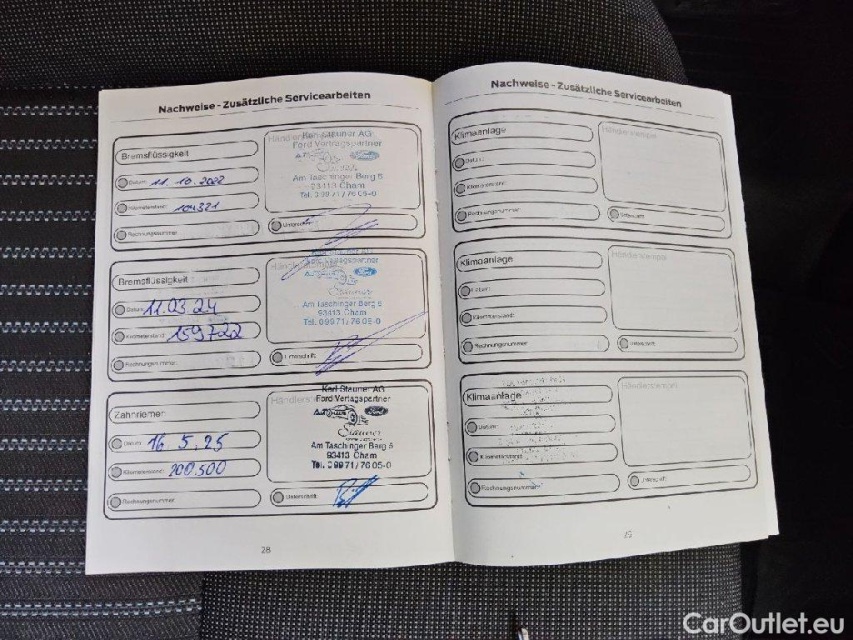 Nachweise - Zusätzliche Servicearbeiten
Bremsflüssigkeit
Datum: 11.10.2022
Kilometerstand:
Rechnungsnummer:
Händlerstempel
Karl Stauner AG
Ford Vertragspartner
Stauner
Am Taschinger Berg 6
93413 Cham
Tel. 09971/7605-0
Unterschrift:
Bremsflüssigkeit
Datum: 11.03 24
Kilometerstand: 159722
Rechnungsnummer:
Händlerstempel
Karl Stauner AG
Ford Vertragspartner
Ford
Stauner
Am Taschinger Berg 6
93413 Cham
Tel. 09971/7605-0
Unterschrift:
Zahnriemen
Datum: 16 5.25
Kilometerstand: 200500
Rechnungsnummer:
Händlerstempel
Karl Stauner AG
Ford Vertragspartner
Ford
Stauner
Am Taschinger Berg 6
93413 Cham
Tel. 09971/7605-0
Unterschrift:
28
Nachweise - Zusätzliche Servicearbeiten
Klimaanlage
Datum:
Kilometerstand:
Rechnungsnummer:
Händlerstempel
Unterschrift:
Klimaanlage
Datum:
Kilometerstand:
Rechnungsnummer:
Händlerstempel
Unterschrift:
Klimaanlage
Datum:
Kilometerstand:
Rechnungsnummer:
Händlerstempel
Unterschrift:
CarOutlet.eu